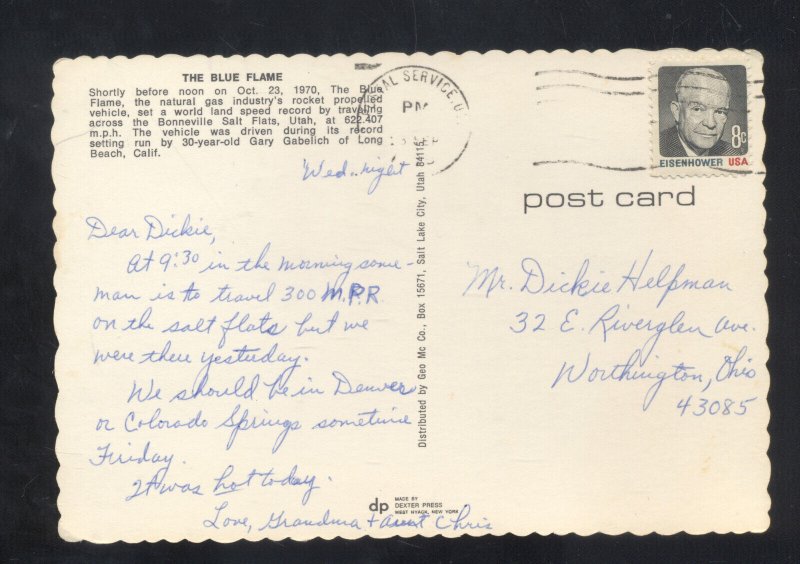 THE BLUE FLAME
Shortly before noon on Oct. 23, 1970, The Blue
Flame, the natural gas industry's rocket propelled
vehicle, set a world land speed record by traveling
across the Bonneville Salt Flats, Utah, at 622.407
m.p.h. The vehicle was driven during its record
setting run by 30-year-old Gary Gabelich of Long
Beach, Calif.
Wed.. night
Dear Dickie,
At 9:30 in the morning some-
man is to travel 300 M.P.R
on the salt flats but we
were there yesterday.
We should be in Denver
or Colorado Springs sometime
Friday.
It was hot today.
Love, Grandma + aunt Chris
Distributed by Geo Mc Co., Box 15671, Salt Lake City, Utah 84115
dp
MADE BY
DEXTER PRESS
WEST NYACK, NEW YORK
AL SERVICE U
PM
8c
EISENHOWER USA
post card
Mr. Dickie Helpman
32 E. Riverglen Ave.
Worthington, Ohio
43085